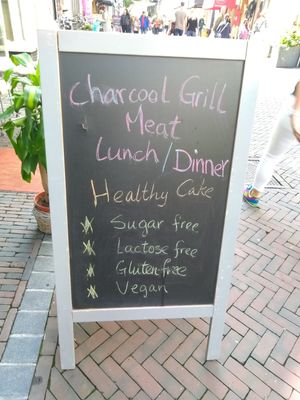 Charcool Grill
Meat
Lunch/Dinner
Healthy Cake
Sugar free
Lactose free
Gluten free
Vegan